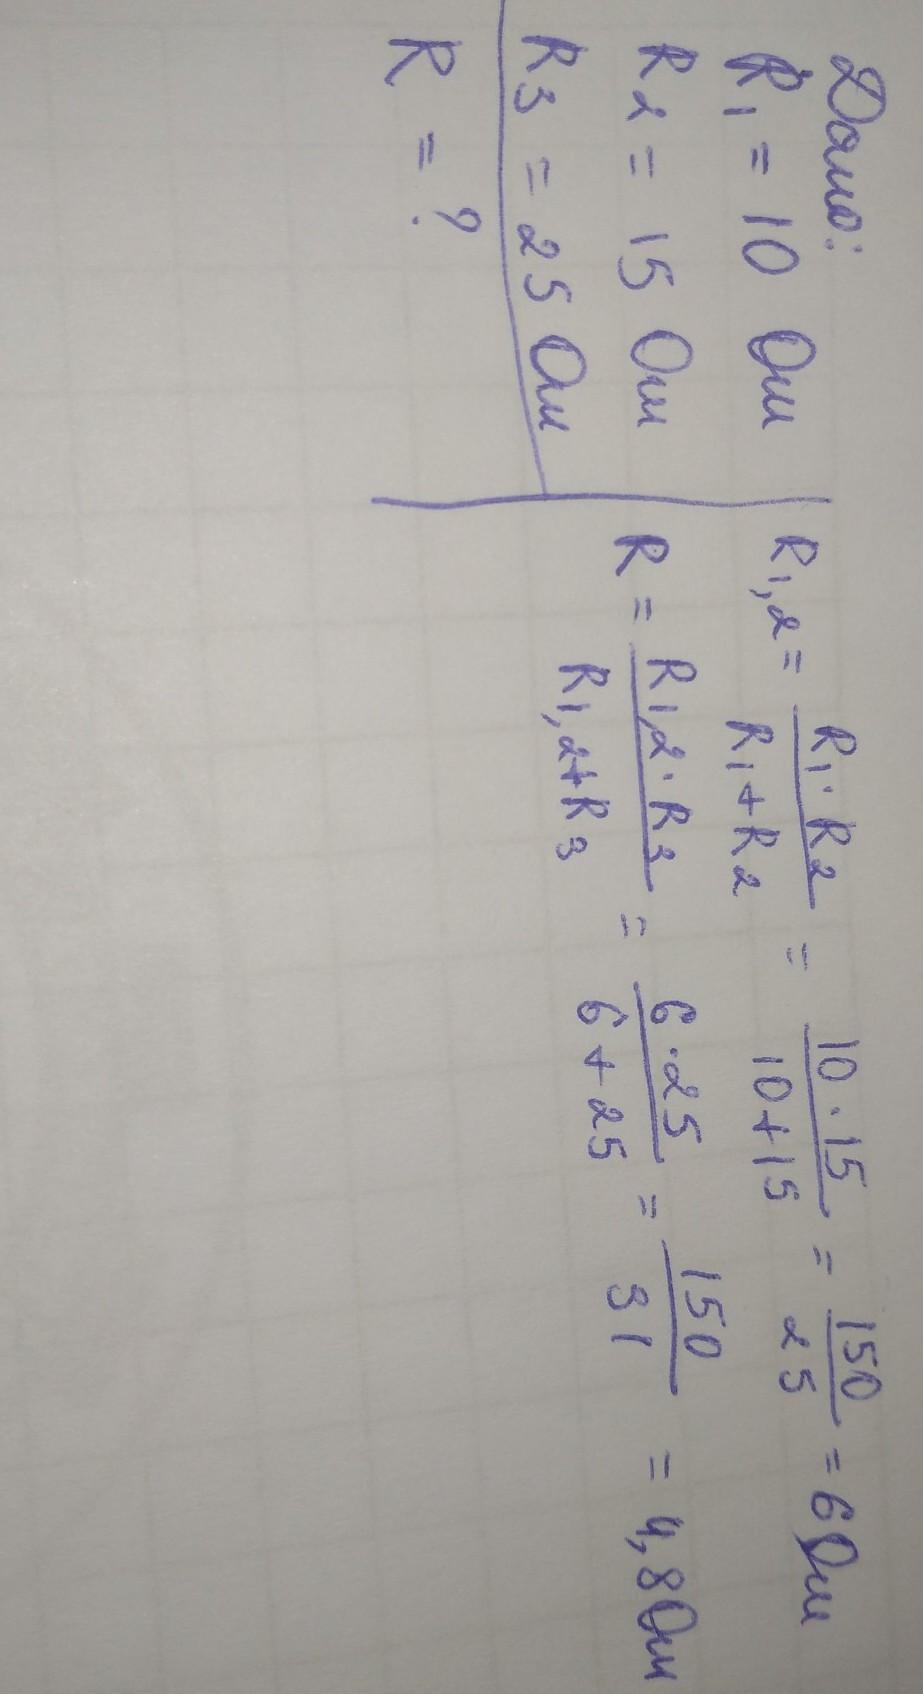 Дано:
R1 = 10 Ом
R2 = 15 Ом
R3 = 25 Ом
R = ?
R1,2 = R1·R2 / R1+R2 = 10·15 / 10+15 = 150 / 25 = 6 Ом
R = R1,2·R3 / R1,2+R3 = 6·25 / 6+25 = 150 / 31 = 4,8 Ом